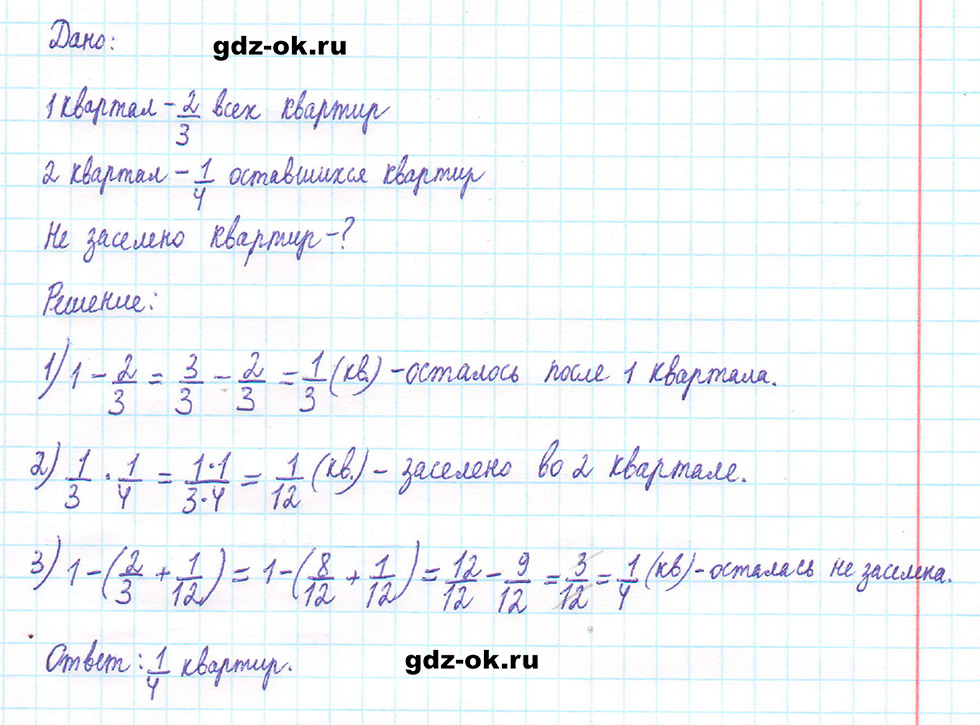 Дано:
gdz-ok.ru
1 квартал - 2/3 всех квартир
2 квартал - 1/4 оставшихся квартир
Не заселено квартир - ?
Решение:
1) 1 - 2/3 = 3/3 - 2/3 = 1/3 (кв.) - осталось после 1 квартала.
2) 1/3 · 1/4 = 1·1/3·4 = 1/12 (кв.) - заселено во 2 квартале.
3) 1 - (2/3 + 1/12) = 1 - (8/12 + 1/12) = 12/12 - 9/12 = 3/12 = 1/4 (кв) - осталась не заселена.
Ответ: 1/4 квартир.
gdz-ok.ru